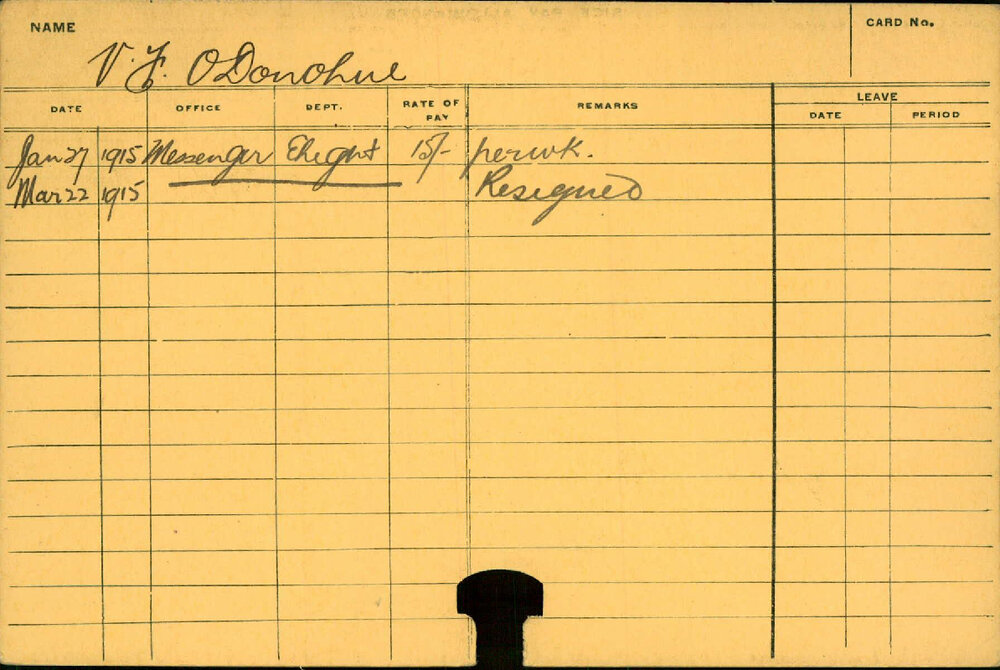 NAME
CARD No.
V. F. O'Donohue
DATE OFFICE DEPT. RATE OF PAY REMARKS LEAVE
DATE PERIOD
Jan 27 1915 Messenger 15/- per wk.
Mar 22 1915 Resigned